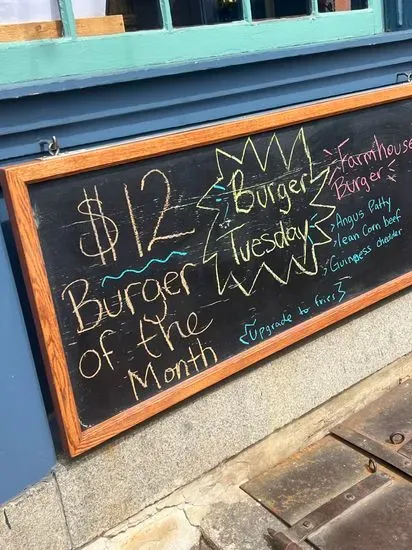 $12
Burger
of the
Month
Burger
Tuesday
Farmhouse
Burger
Angus Patty
lean Corn beef
Guinness cheddar
Upgrade to fries